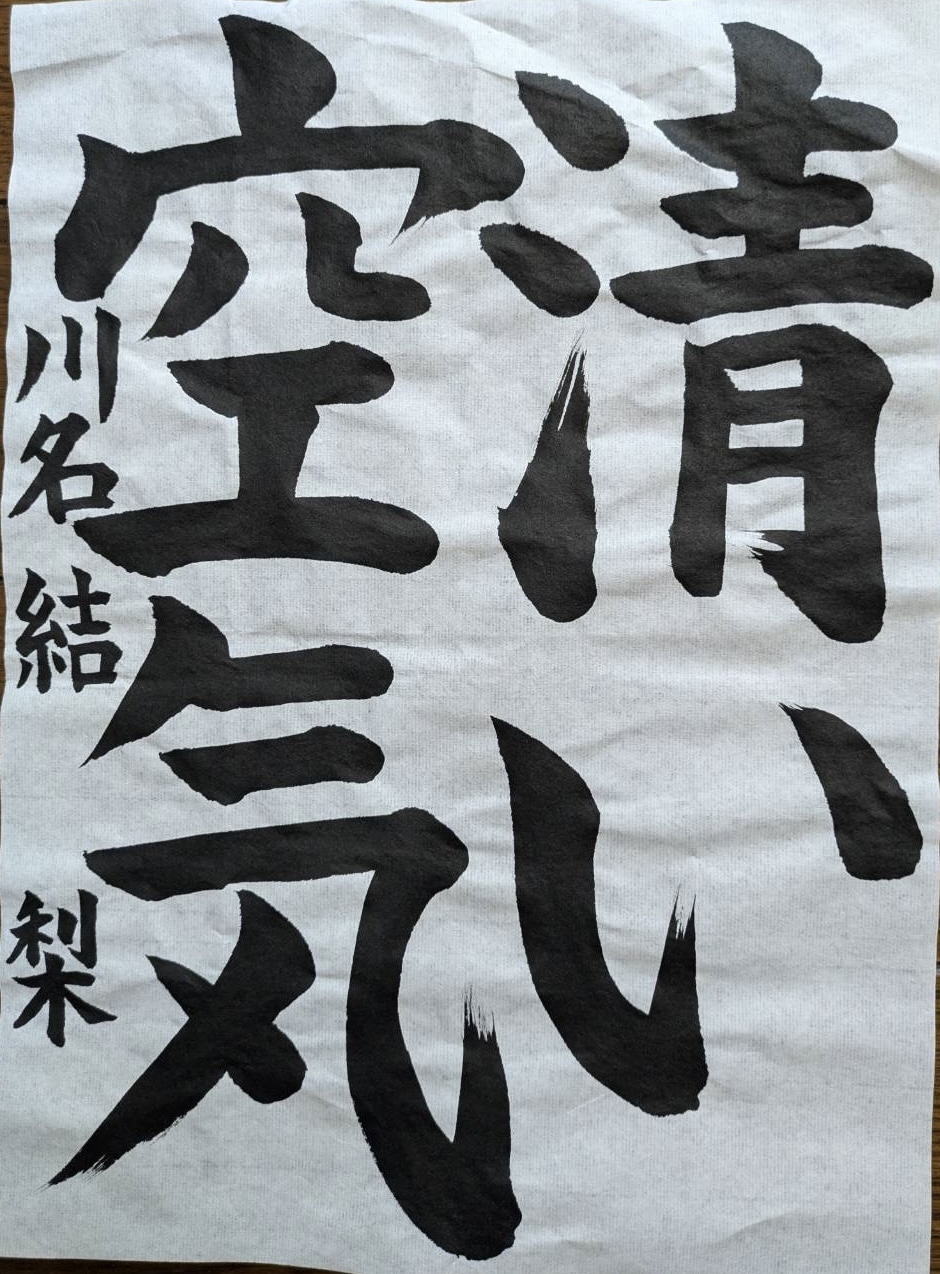 清い
空気
川名結梨